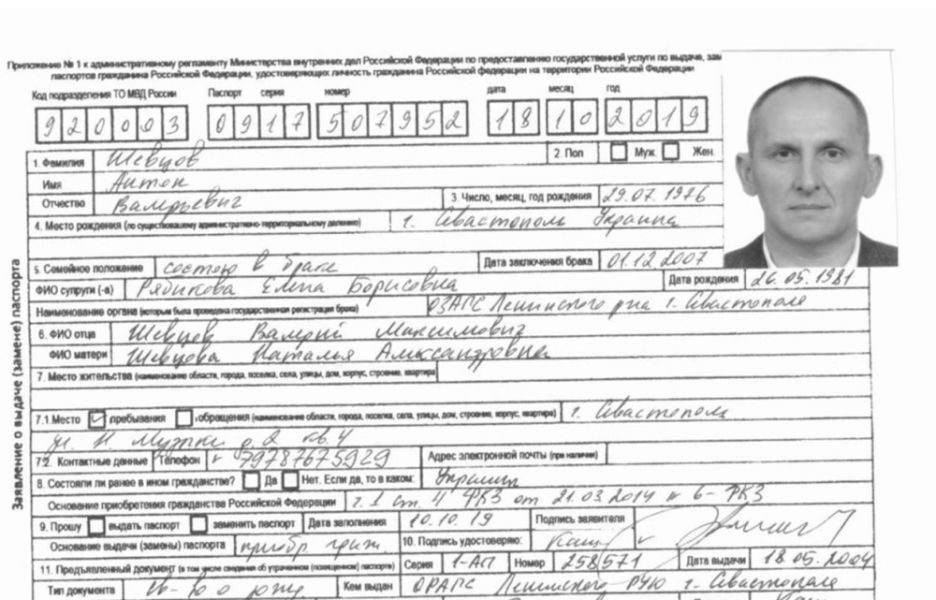 Приложение № 1 к административному регламенту Министерства внутренних дел Российской Федерации по предоставлению государственной услуги по выдаче, зам
паспортов гражданина Российской Федерации, удостоверяющих личность гражданина Российской федерации на территории Российской Федерации
Код подразделения ТО МВД России Паспорт серия номер дата месяц год
920003 0917 507952 18 10 2019
1. Фамилия Шевцов 2. Пол Муж. Жен.
Имя Антон
Отчество Валерьевич 3. Число, месяц, год рождения 29.07.1976
4. Место рождения (по существовавшему административно-территориальному делению) г. Севастополь Украина
5. Семейное положение состою в браке Дата заключения брака 01.12.2007
ФИО супруги (-а) Рябикова Елена Борисовна Дата рождения 26.05.1981
Наименование органа (которым была проведена государственная регистрация брака) ОЗАГС Ленинского р-на г. Севастополя
6. ФИО отца Шевцов Валерий Максимович
ФИО матери Шевцова Наталья Александровна
7. Место жительства (наименование области, города, поселка, села, улицы, дом, корпус, строение, квартира)
7.1.Место пребывания обращения (наименование области, города, поселка, села, улицы, дом, строение, корпус, квартира) г. Севастополь
ул. Н. Музыки д. 2 кв. 4
7.2. Контактные данные Телефон 79787675929 Адрес электронной почты (при наличии)
8. Состояли ли ранее в ином гражданстве? Да Нет. Если да, то в каком: Украины
Основание приобретения гражданства Российской Федерации ч. 1 ст. 4 ФКЗ от 21.03.2014 № 6-ФКЗ
9. Прошу выдать паспорт заменить паспорт Дата заполнения 10.10.19 Подпись заявителя
Основание выдачи (замены) паспорта приобр. граж. 10. Подпись удостоверяю:
11. Предъявленный документ (в том числе сведения об утраченном (похищенном) паспорте) Серия 1-АП Номер 258571 Дата выдачи 18.05.2004
Тип документа св-во о рожд Кем выдан ОРАГС Ленинского РУЮ г. Севастополя
Заявление о выдаче (замене) паспорта